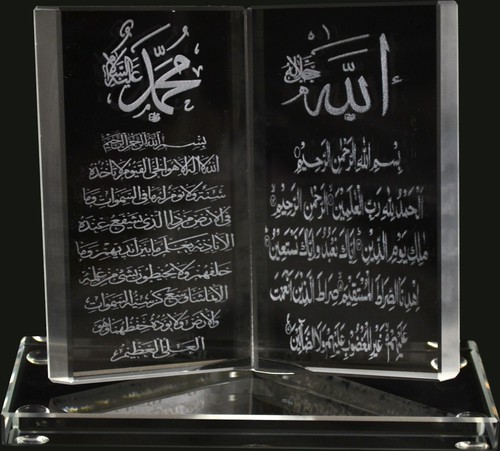 الله جل جلاله
بسم الله الرحمن الرحيم
الحمد لله رب العلمين الرحمن الرحيم
ملك يوم الدين اياك نعبد واياك نستعين
اهدنا الصراط المستقيم صراط الذين انعمت
عليهم غير المغضوب عليهم ولا الضالين
محمد عليه السلام
بسم الله الرحمن الرحيم
الله لا اله الا هو الحي القيوم لا تأخذه
سنة ولا نوم له ما في السموات وما
في الارض من ذا الذي يشفع عنده
الا باذنه يعلم ما بين ايديهم وما
خلفهم ولا يحيطون بشئ من علمه
الا بما شاء وسع كرسيه السموات
والارض ولا يؤده حفظهما وهو
العلي العظيم